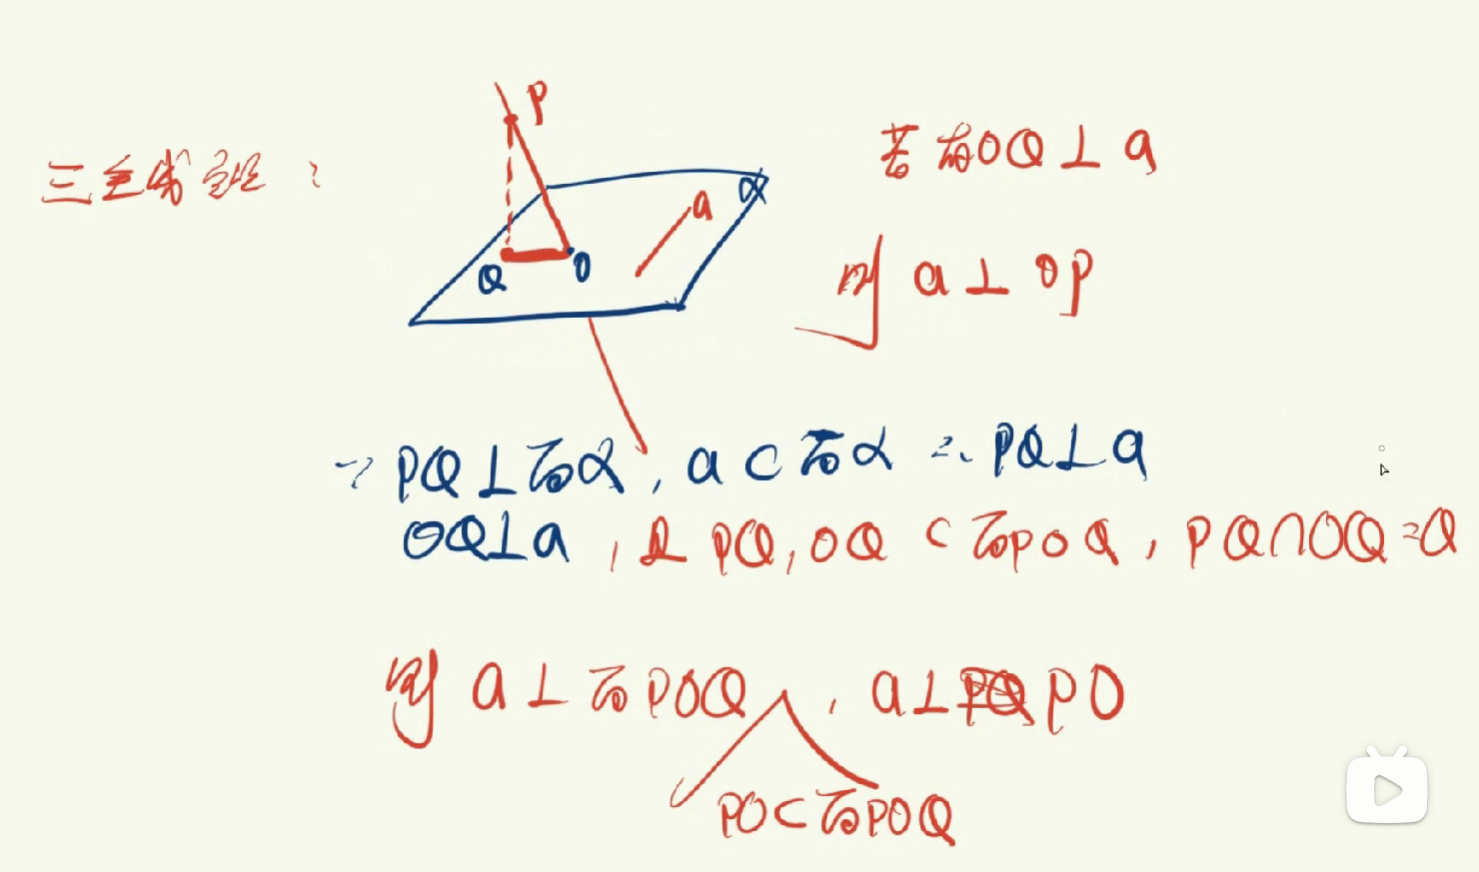 三垂线定理：
P
α
a
Q O
若有OQ⊥a
则 a⊥OP
∵ PQ⊥面α，a⊂面α ∴ PQ⊥a
OQ⊥a，且PQ，OQ⊂面POQ，PQ∩OQ=Q
则 a⊥面POQ，a⊥PO
PO⊂面POQ